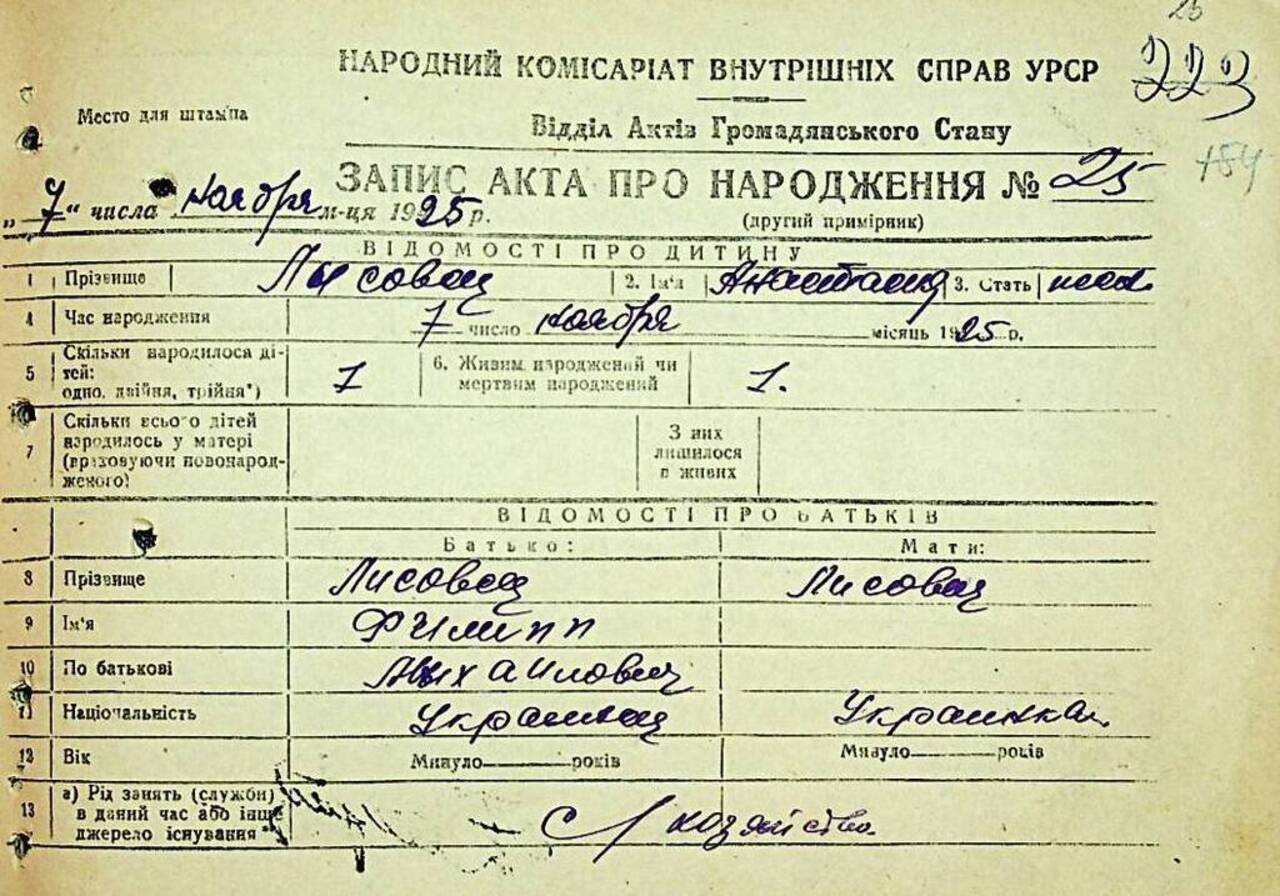 25
223
НАРОДНИЙ КОМІСАРІАТ ВНУТРІШНІХ СПРАВ УРСР
Место для штампа
Відділ Актів Громадянського Стану
184
ЗАПИС АКТА ПРО НАРОДЖЕННЯ № 25
„7“ числа ноября м-ця 1925 р.
(другий примірник)
ВІДОМОСТІ ПРО ДИТИНУ
1 Прізвище Лысовец 2. Ім'я Анастасия 3. Стать жен.
4 Час народження 7 число ноября місяць 1925 р.
5 Скільки народилося ді-
тей:
одно, двійня, трійня*) 1 6. Живим народжений чи
мертвим народжений 1.
7 Скільки всього дітей
народилось у матері
(враховуючи новонарод-
женого)
З них
лишилося
в живих
ВІДОМОСТІ ПРО БАТЬКІВ
Батько: Мати:
8 Прізвище Лисовец Лисовец
9 Ім'я Филипп
10 По батькові Михайлович
11 Національність Украинец Украинка.
12 Вік Минуло років Минуло років
13 а) Рід занять (служби)
в даний час або інше
джерело існування* С/хозяйство.